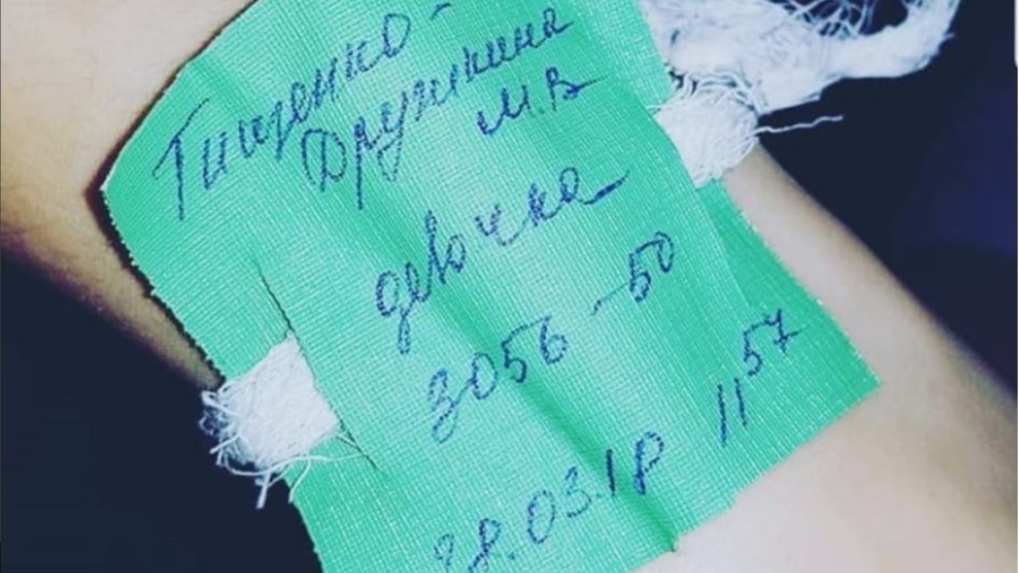 Тищенко-
Дружинина
М.В
девочка
3056-50
28.03.18 11⁵⁷